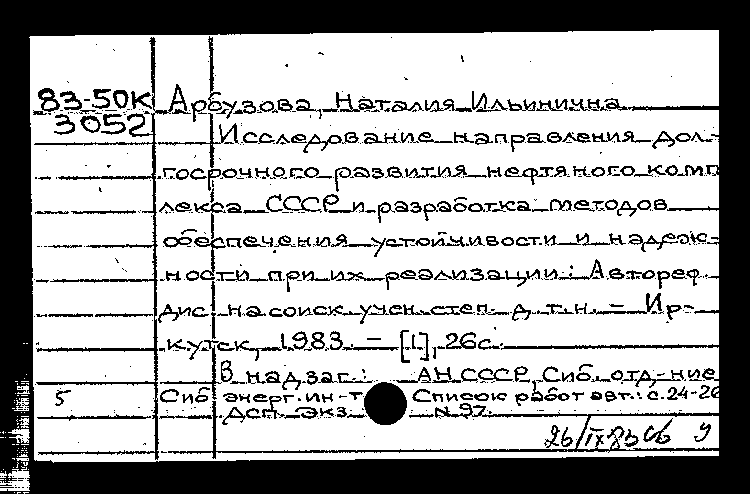 83-50К Арбузова, Наталия Ильинична
3052 Исследование направления дол-
госрочного развития нефтяного комп
лекса СССР и разработка методов
обеспечения устойчивости и надеж-
ности при их реализации: Автореф.
дис. на соиск. учен. степ. д.т.н. – Ир-
кутск, 1983. – [1], 26с.
В надзаг.: АН СССР, Сиб. отд-ние
5 Сиб энерг. ин-т Список работ авт.: с.24-26
Дсп. экз. N 97.
26/IX-83